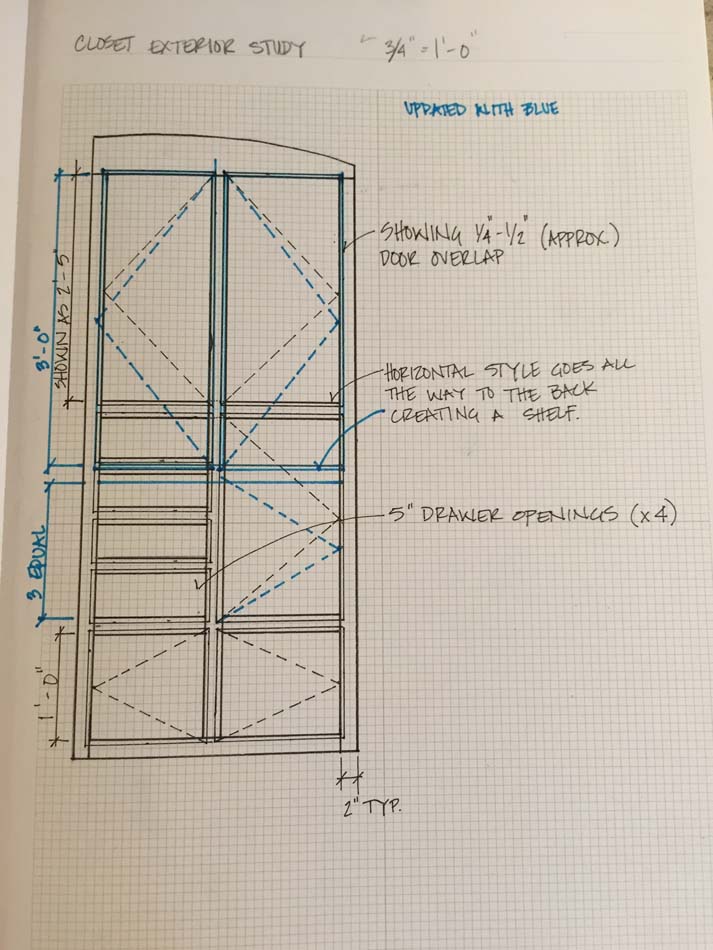 CLOSET EXTERIOR STUDY 3/4" = 1'-0"
UPDATED WITH BLUE
SHOWING 1/4"-1/2" (APPROX.)
DOOR OVERLAP
3'-0"
SHOWN AS 2'-5"
HORIZONTAL STYLE GOES ALL
THE WAY TO THE BACK
CREATING A SHELF.
5" DRAWER OPENINGS (x4)
3 EQUAL
1'-0"
2" TYP.